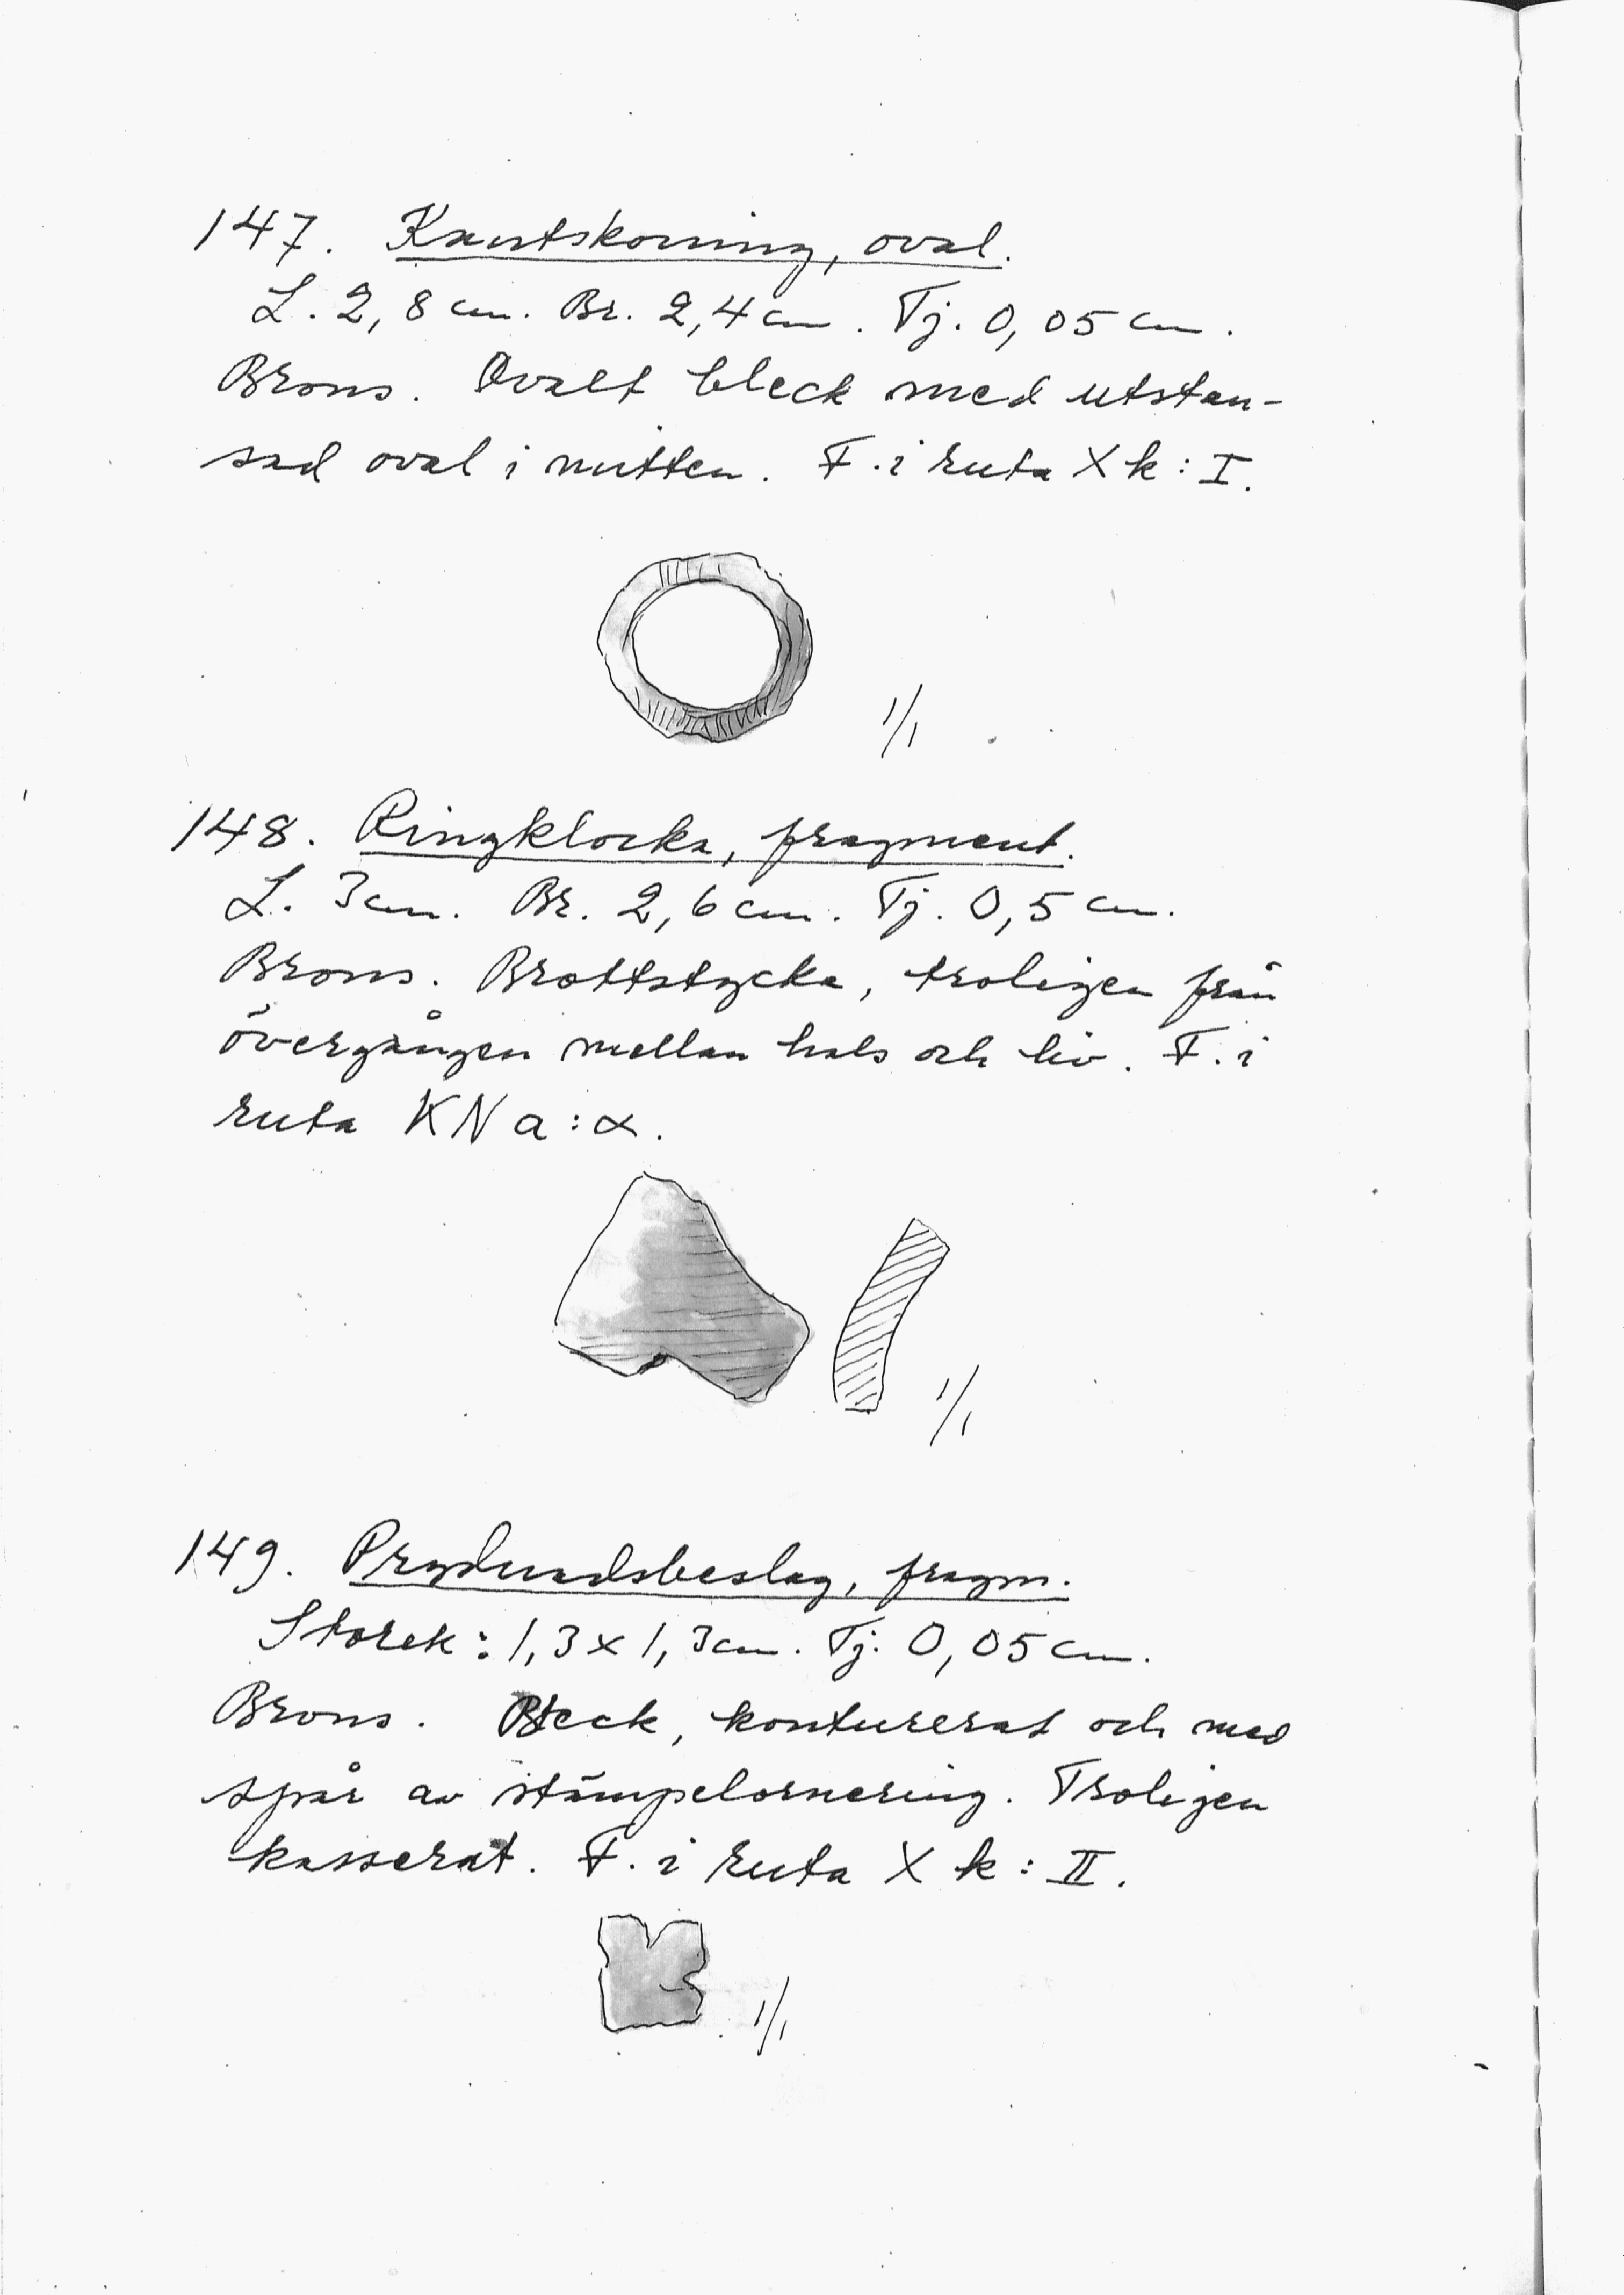 147. Kantskoning, oval.
L. 2,8 cm. Br. 2,4 cm. Tj. 0,05 cm.
Brons. Ovalt bleck med utstan-
sad oval i mitten. F. i ruta X k : I.
1/1
148. Ringklocka, fragment.
L. 3 cm. Br. 2,6 cm. Tj. 0,5 cm.
Brons. Brottstycke, troligen från
övergången mellan hals och liv. F. i
ruta KN a : α.
1/1
149. Prydnadsbeslag, fragm.
Storek : 1,3 x 1,3 cm. Tj. 0,05 cm.
Brons. Bleck, konturerat och med
spår av stämpelornering. Troligen
kasserat. F. i ruta X k : II.
1/1